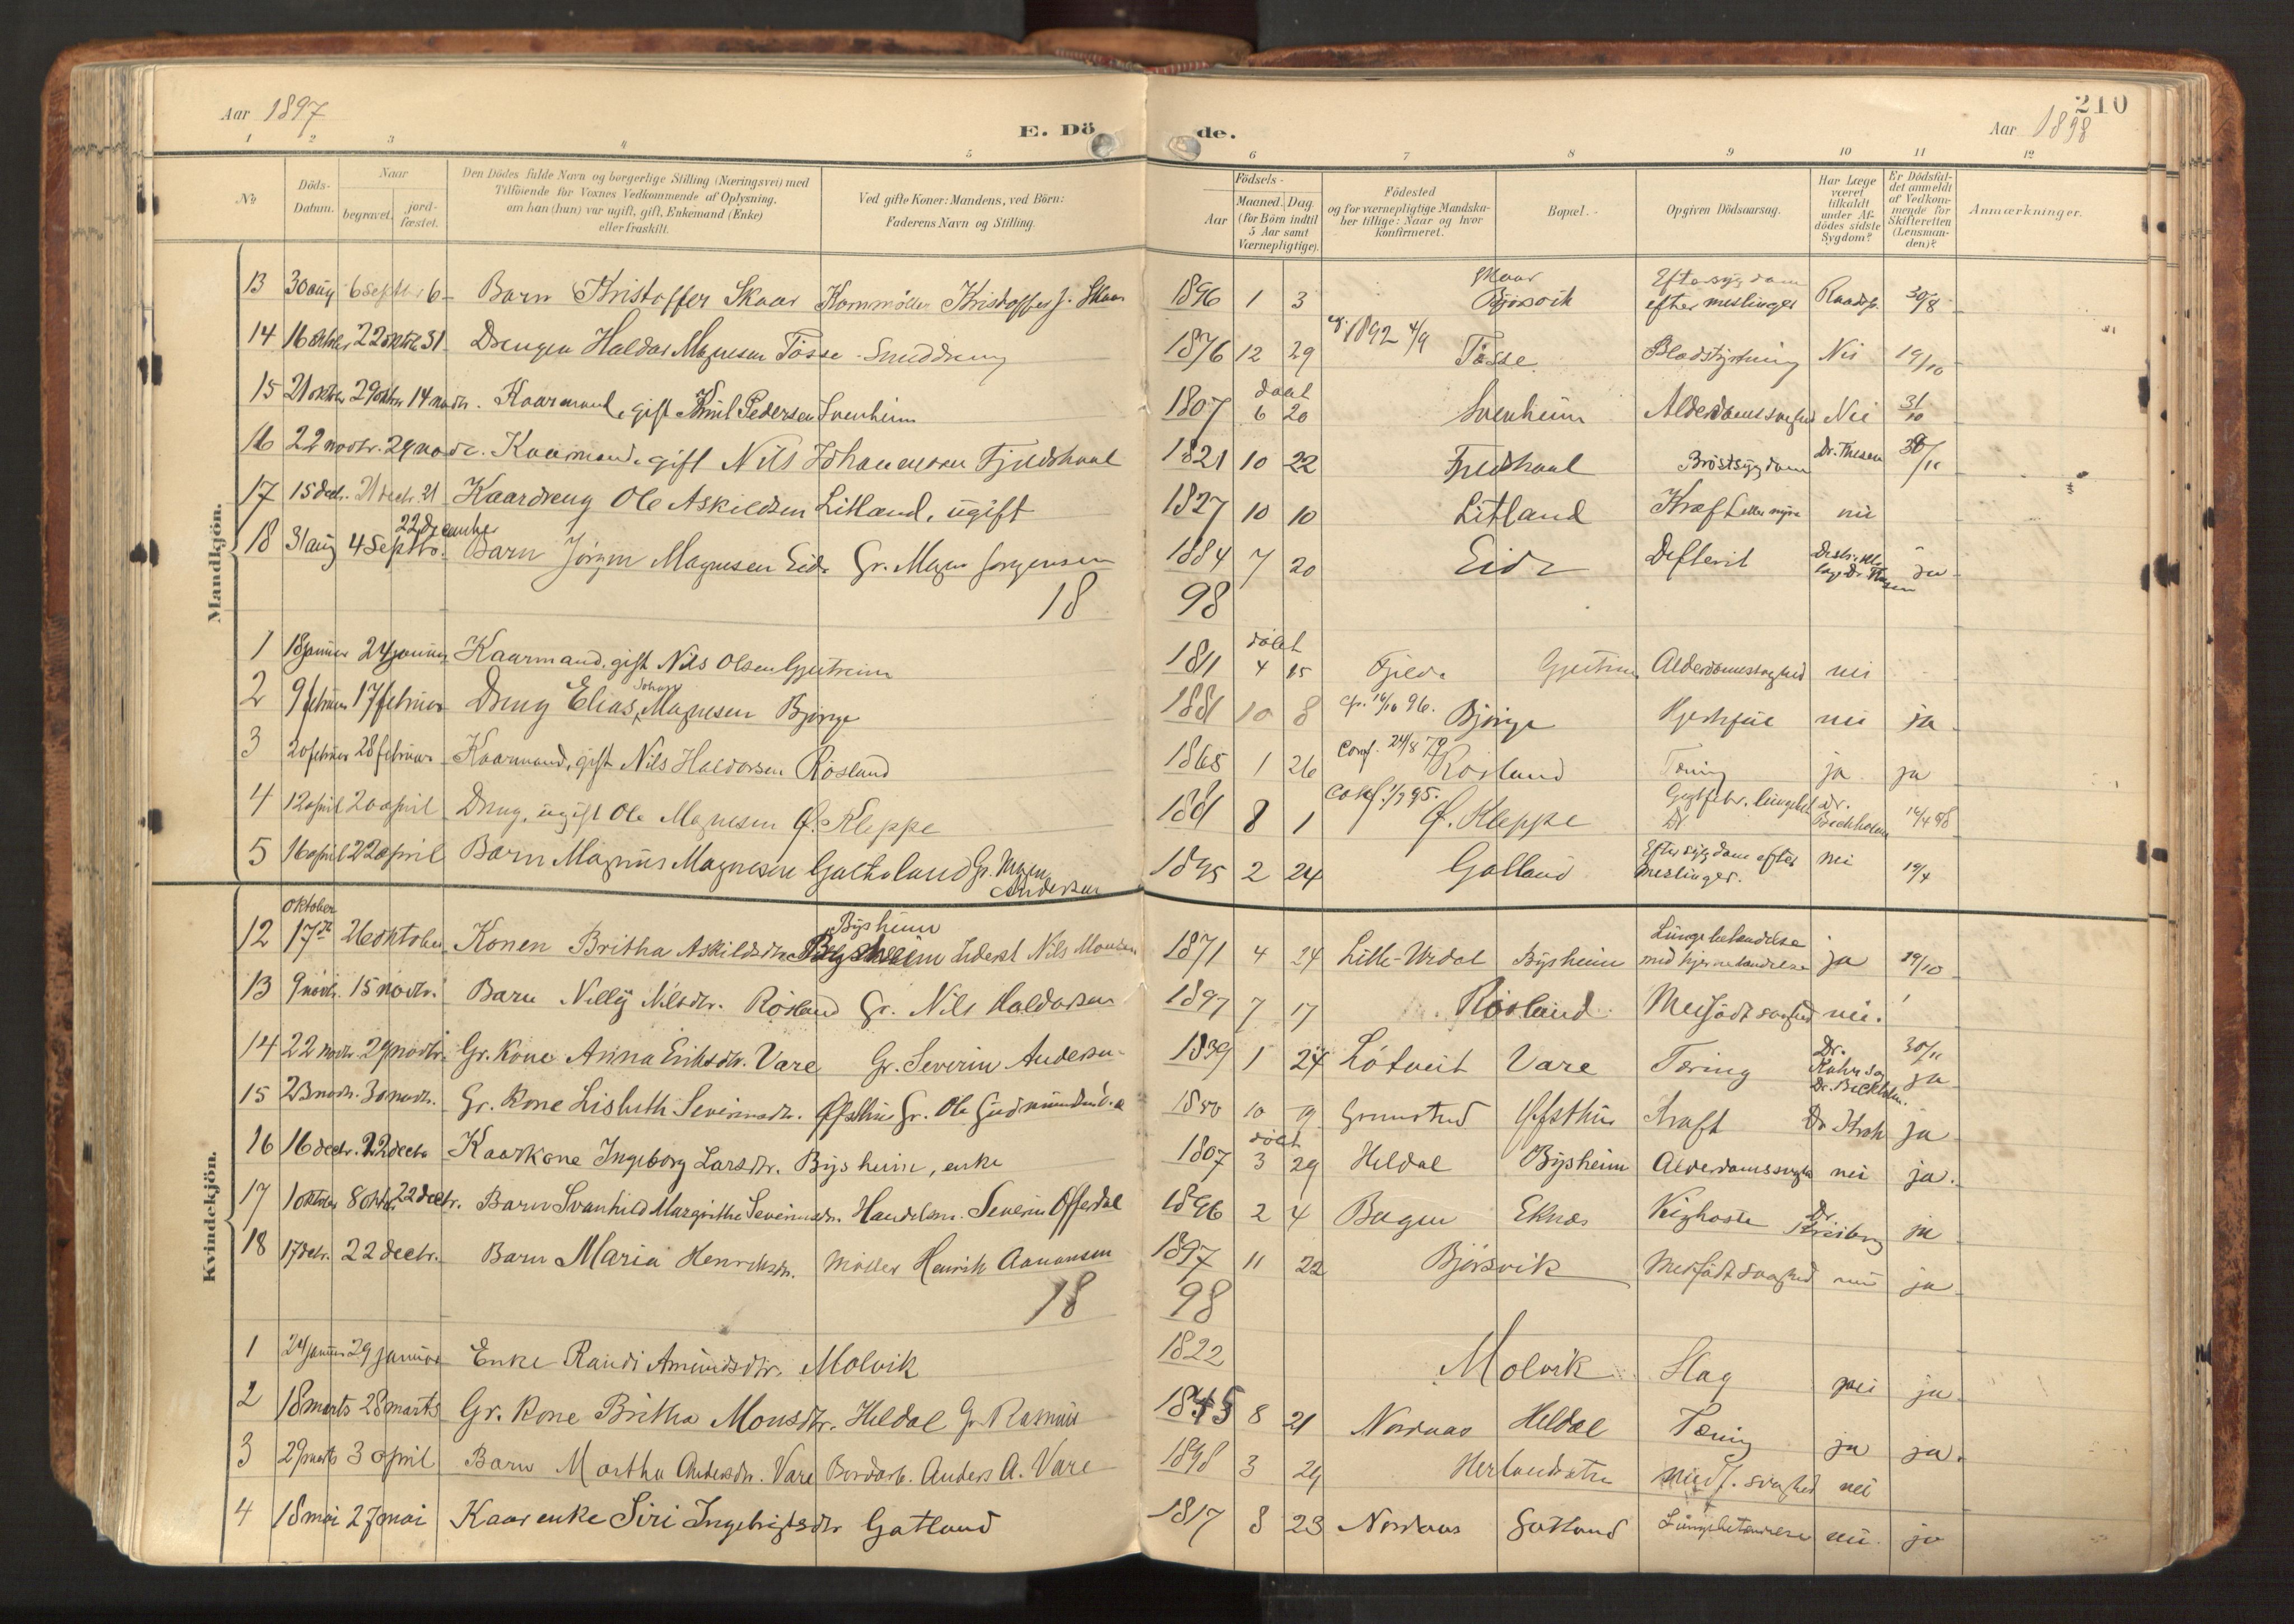 Aar 1897
E. Dö
de.
210
Aar 1898
1 2 3 4 5 6 7 8 9 10 11 12
No
Döds-Datum.
Naar
begravet.
jord-fæstet.
Den Dödes fulde Navn og borgerlige Stilling (Næringsvei) med
Tilföiende for Voxnes Vedkommende af Oplysning.
om han (hun) var ugift, gift, Enkemand (Enke)
eller fraskilt.
Ved gifte Koner: Mandens, ved Börn:
Faderens Navn og Stilling.
Födsels-
Aar
Maaned. Dag.
(for Börn indtil
5 Aar samt
Værnepligtige).
Födested
og for værnepligtige Mandska-
ber tillige: Naar og hvor
konfirmeret.
Bopæl.
Opgiven Dödsaarsag.
Har Læge
været
tilkaldt
under Af-
dödes sidste
Sygdom?
Er Dödsfal-
det anmeldt
af Vedkom-
mende for
Skifteretten
(Lensman-
den)?
Anmærkninger.
Mandkjön.
13 30 aug 6 septbr 6 Barn Kristoffer Skaar Kornmöller Kristoffer J. Skaar 1896 1 3 Skaar Bjørsvik Eftersygdom efter meslinger 30/8
14 16 oktober 22 oktbr 31 Drengen Haldor Magnesen Tösse 1876 12 29 1892 4/9 Tösse Blodstyrtning Nei 19/10
15 21 oktbr 29 oktbr 14 novbr. Kaarmand, gift Pedersen Svenheim 1807 döbt 6 20 Svenheim Alderdomssvaghed Nei 31/10
16 22 novbr. 29 novbr. Kaarmand, gift Nils Johannesen Fjeldskaal 1821 10 22 Fjeldskaal Bröstsygdom Dr. Thesen 30/11
17 15 decbr. 21 decbr. 21 Kaardreng Ole Askildsen Litland, ugift 1827 10 10 Litland Kræft eller nyre nei
18 31 aug 4 Septbr. 22 December Barn Jörgen Magnesen Eide Gr. Magne Jörgensen 1884 7 20 Eide Defterit ja
18 98
1 18 januar 24 januar Kaarmand, gift Nils Olsen Gjeitrein 1811 döbt 4 15 Fjelde Alderdomssvaghed nei
2 9 februar 17 februar Dreng Elias Johan Magnesen Bjørge 1881 10 8 16/10 96. Bjørge nei ja
3 20 februar 28 februar Kaarmand, gift Nils Haldorsen Rösland 1865 1 26 Conf. 24/8 79 Rösland Tæring ja ja
4 12 april 20 april Dreng, ugift Ole Magnesen Ø. Kleppe 1881 8 1 Conf. 1/9 95. Ø. Kleppe Dr. 14/4 98
5 16 april 22 april Barn Magnus Magnesen Gr. Magne Andersen 1895 2 24 Eftersygdom efter meslinger. nei 19/4
Kvindekjön.
12 oktober 17de 26 oktober Konen Britha Askildsdtr. Bysheim Inderst Nils Monsen 1871 4 24 Litle-Urdal Bysheim Lungebetændelse med hjernebetændelse ja 19/10
13 9 novbr. 15 novbr. Barn Nelly Nilsdtr. Rösland Gr. Nils Haldorsen 1897 7 17 Rösland Medfödt svaghed nei.
14 22 novbr. 29 novbr. Gr. Kone Anna Eriksdtr. Vare Gr. Severin Andersen 1839 1 24 Lötveit Vare Tæring Dr. Kahrs og Dr. Beckholm. 30/11 ja
15 23 novbr. 30 novbr. Gr. Kone Lisbeth Severinsdtr. Øfsthus Gr. Ole Gudmundsen 1850 10 19 Grimstad Øfsthus Kraft Dr. ja
16 16 decbr. 22 decbr. Kaarkone Ingeborg Larsdtr. Bysheim, enke 1807 döbt 3 29 Heldal Bysheim Alderdomssvaghed nei ja.
17 1 oktober 8 oktbr. 22 decbr. Barn Svanhild Margrethe Severinsdtr. Handelsm. Severin Offerdal 1896 2 4 Bergen Eknæs Kighoste Dr. ja
18 17 decbr. 22 decbr. Barn Maria Henriksdtr. Möller Henrik Aamonsen 1897 11 22 Bjørsvik Medfödt svaghed nei ja
18 98
1 24 januar 29 januar Enke Randi Amundsdtr. Molvik 1822 Molvik Slag nei ja
2 18 marts 28 marts Gr. Kone Britha Monsdtr. Heldal Gr. Rasmus 1845 8 21 Nordaas Heldal Tæring ja ja.
3 29 marts 3 april Barn Martha Andersdtr. Vare Bordarb. Anders A. Vare 1898 3 29 Medf. svaghed nei
4 18 mai 27 mai Kaarenke Siri Ingebrigtsdtr Gatland 1817 8 23 Nordaas Gatland Lungebetændelse nei. ja